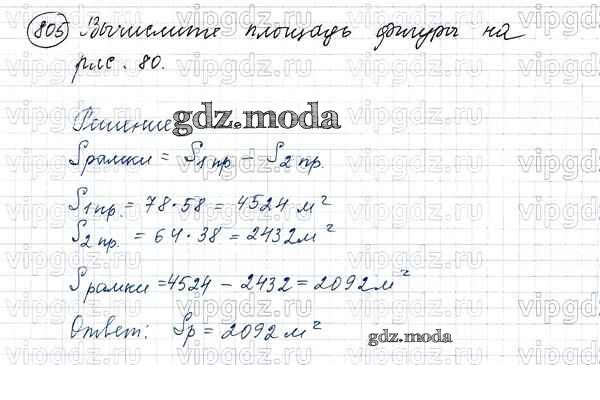 805 Вычислите площадь фигуры на
рис. 80.
Решение
gdz.moda
Sрамки = S1 пр - S2 пр.
S1 пр. = 78·58 = 4524 м²
S2 пр. = 64·38 = 2432 м²
Sрамки = 4524 - 2432 = 2092 м²
Ответ: Sр = 2092 м²
gdz.moda